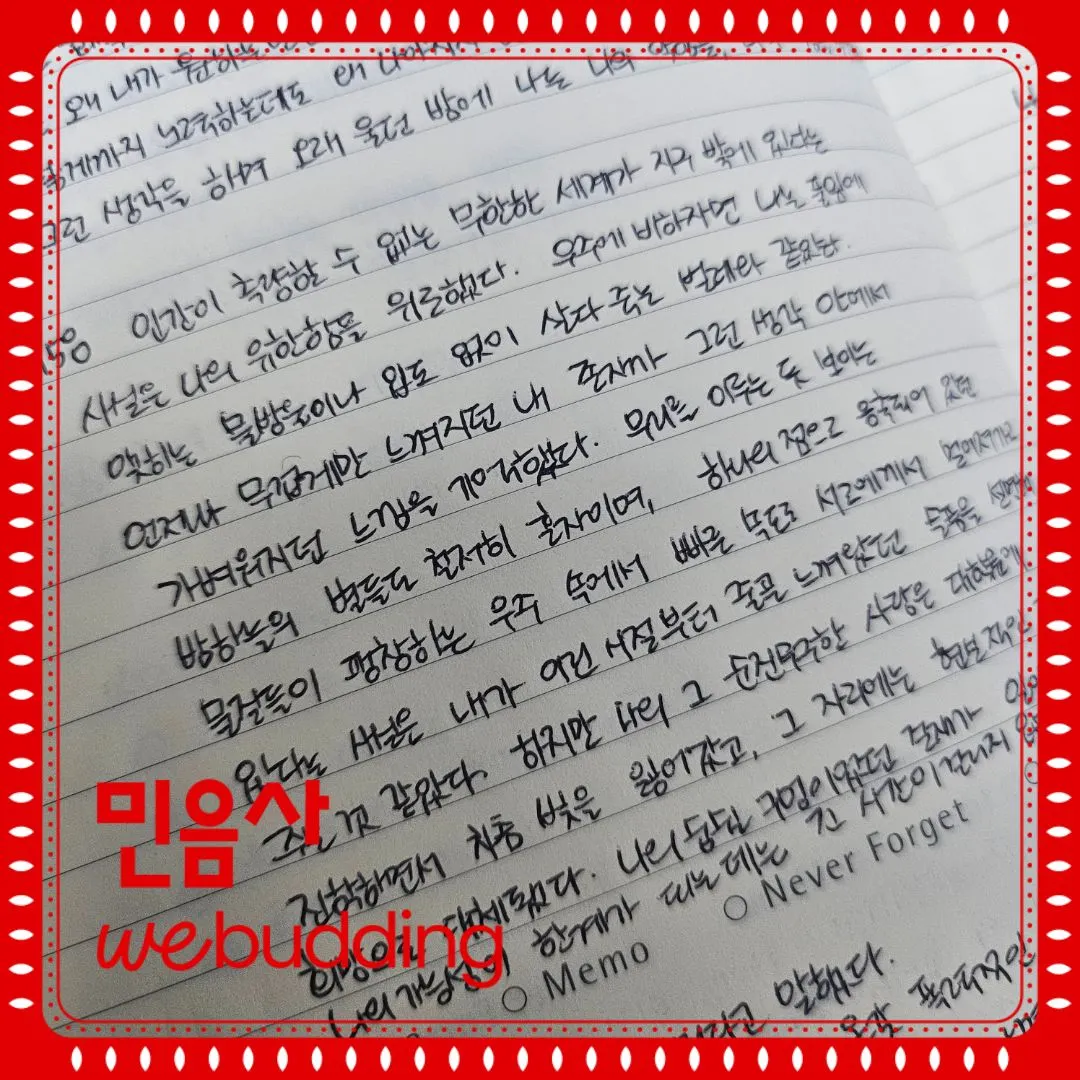 왜 내가
노력하는데도 왜 나아지지
그런 생각을 하며 오래 울던 밤에 나는 나의
150 인간이 측량할 수 없는 무한한 세계가 지구 밖에 있다는
사실은 나의 유한함을 위로했다. 우주에 비하자면 나는 풀잎에
맺히는 물방울이나 입도 없이 살다 죽는 벌레와 같았다.
언제나 무겁게만 느껴지던 내 존재가 그런 생각 안에서
가벼워지던 느낌을 기억했다. 무리를 이루는 듯 보이는
밤하늘의 별들도 철저히 혼자이며, 하나의 점으로 응축되어 있던
물질들이 팽창하는 우주 속에서 빠른 속도로 서로에게서 멀어지고
있다는 사실은 내가 어린 시절부터 줄곧 느껴왔던 슬픔을 설명해
주는 것 같았다. 하지만 나의 그 순전무구한 사랑은 대학원에
진학하면서 차츰 빛을 잃어갔고, 그 자리에는 현실적인
희망으로 대체됐다. 나의 담담 구임이었던 존재가
나의 가능성의 한계가 되는 데는 긴 시간이 걸리지 않
Memo
Never Forget
말했다.
민음사
webudding